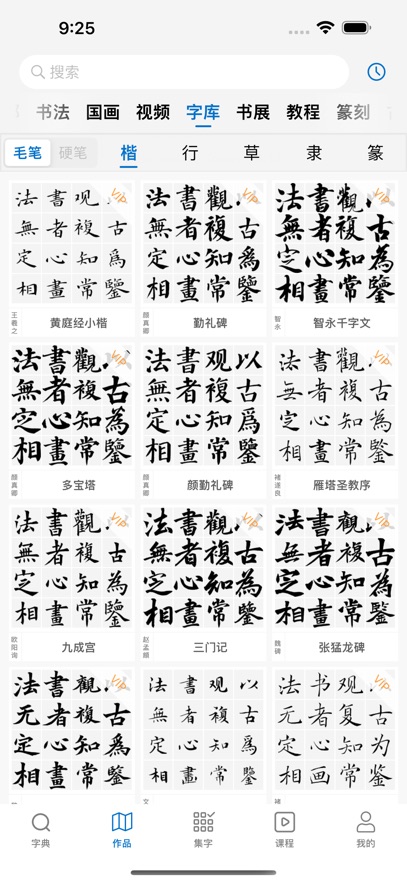 9:25
搜索
书法 国画 视频 字库 书展 教程 篆刻
毛笔 硬笔 楷 行 草 隶 篆
法書观 法書觀 法書觀
無者複古 無者複古 無者複古
定心知爲 定心知為 定心知為
相畫常鑒 相畫常鑒 相畫常鑒
王羲之 黄庭经小楷 颜真卿 勤礼碑 智永 智永千字文
法書觀 法書观以 法書觀
無者複古 無者複古 无者複古
定心知為 定心知爲 定心知為
相畫常鑒 相畫常鑒 相畫常鑒
颜真卿 多宝塔 颜真卿 颜勤礼碑 褚遂良 雁塔圣教序
法書觀 法書觀 法書觀
無者複古 無者複古 無者複古
定心知為 定心知為 定心知為
相畫常鑒 相畫常鑒 相畫常鑒
欧阳询 九成宫 赵孟頫 三门记 魏碑 张猛龙碑
法書觀 法書观以 法书观
无者複古 無者複古 无者复古
定心知爲 定心知爲 定心知为
相畫常鑒 相畫常鑒 相画常鉴
文 褚
字典 作品 集字 课程 我的